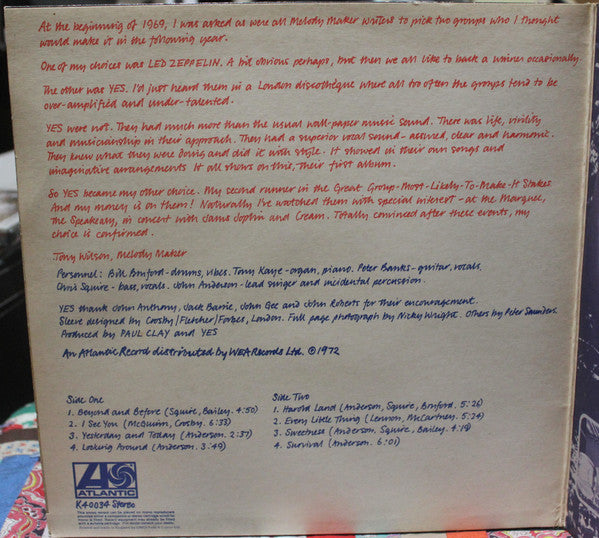 At the beginning of 1969, I was asked as were all Melody Maker writers to pick two groups who I thought
would make it in the following year.
One of my choices was LED ZEPPELIN. A bit obvious perhaps, but then we all like to back a winner occasionally
The other was YES. I'd just heard them in a London discothèque where all too often the groups tend to be
over-amplified and under-talented.
YES were not. They had much more than the usual wall-paper music sound. There was life, virility
and musicianship in their approach. They had a superior vocal sound - assured, clear and harmonic.
They knew what they were doing and did it with style. It showed in their own songs and
imaginative arrangements It all shows on this, their first album.
So YES became my other choice. My second runner in the Great Group-Most-Likely-To-Make-It Stakes
And my money is on them! Naturally I've watched them with special interest - at the Marquee,
The Speakeasy, in concert with Janis Joplin and Cream. Totally convinced after these events, my
choice is confirmed.
Tony Wilson, Melody Maker
Personnel: Bill Bruford - drums, vibes. Tony Kaye - organ, piano. Peter Banks - guitar, vocals.
Chris Squire - bass, vocals. John Anderson - lead singer and incidental percussion.
YES thank John Anthony, Jack Barrie, John Gee and John Roberts for their encouragement.
Sleeve designed by Crosby/Fletcher/Forbes, London. Full page photograph by Nicky Wright. Others by Peter Saunders.
Produced by PAUL CLAY and YES
An Atlantic Record distributed by WEA Records Ltd. ℗ 1972
Side One
1. Beyond and Before (Squire, Bailey. 4:50)
2. I See You (McGuinn, Crosby. 6:33)
3. Yesterday and Today (Anderson. 2:37)
4. Looking Around (Anderson. 3:49)
Side Two
1. Harold Land (Anderson, Squire, Bruford. 5:26)
2. Every Little Thing (Lennon, McCartney. 5:24)
3. Sweetness (Anderson, Squire, Bailey. 4:19)
4. Survival (Anderson. 6:01)
ATLANTIC
K40034 Stereo